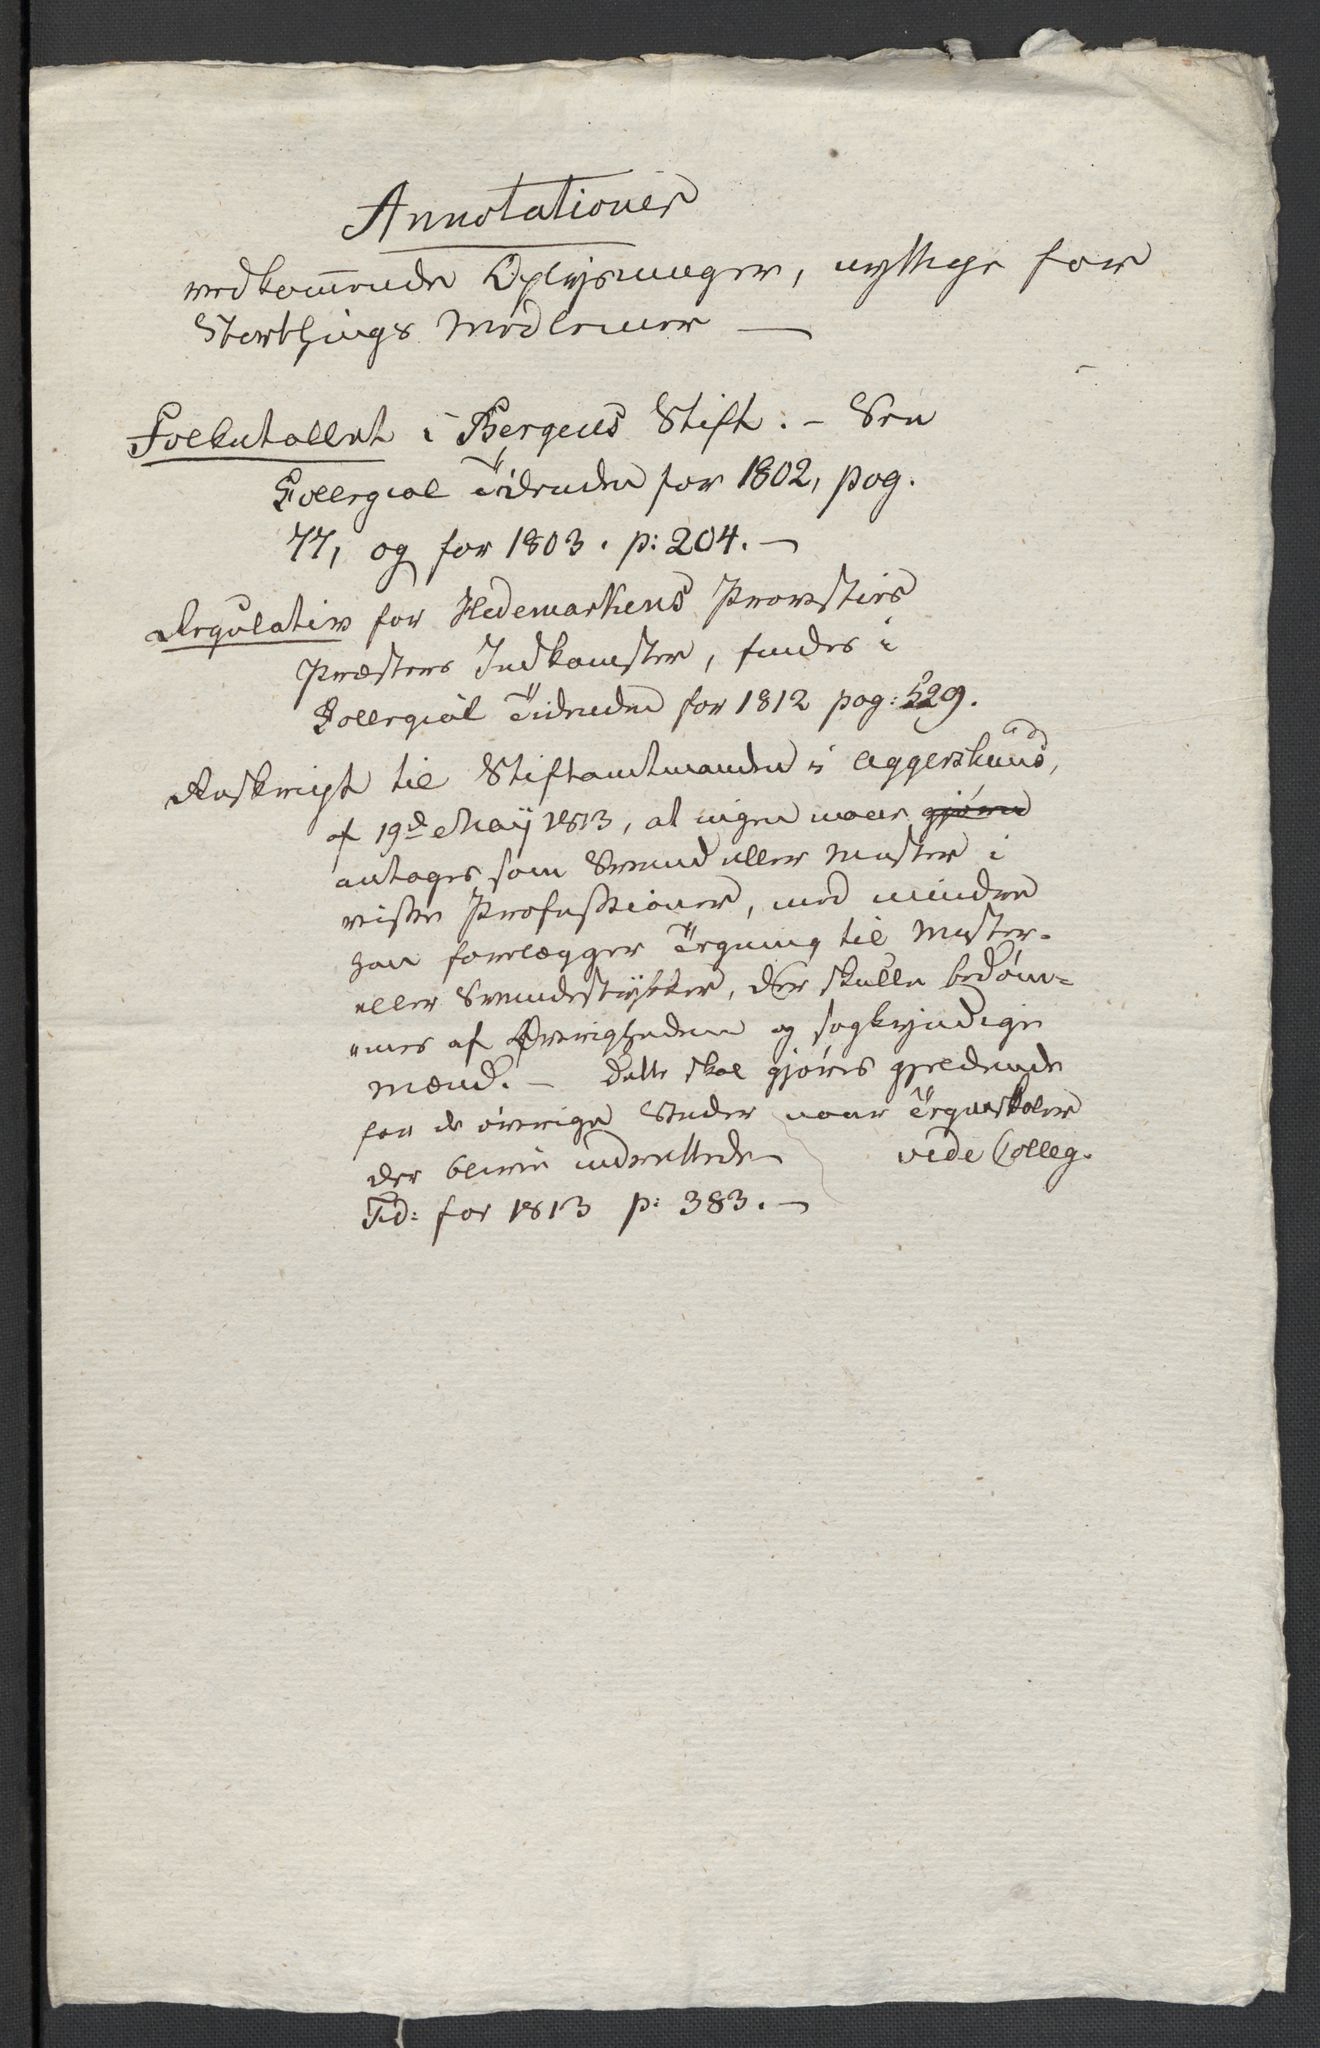 Annotationer
vedkommende Oplysninger, nyttige for
Storthings Medlemer —
Folketallet i Bergens Stift. – See
Collegial Tidenden for 1802, pag.
77, og for 1803. p: 204. —
Regulativ for Hedemarkens Provsties
Præsters Indkomster, findes i
Collegial Tidenden for 1812 pag: 529.
Reskript til Stiftamtmanden i Aggershuus,
af 19d May 1813, at ingen maae gjøres
antages som Svend eller Mester i
visse Professioner, med mindre
han forelægger Tegning til Mester-
eller Svendestykker, der skulle bedøm-
"mes af Øvrigheden og sagkyndige
Mænd. – Dette skal gjøres gjeldende
for de øvrige Stæder naar Tegneskoler
der blive indrettede vide Colleg.
Tid: for 1813 p: 383. —